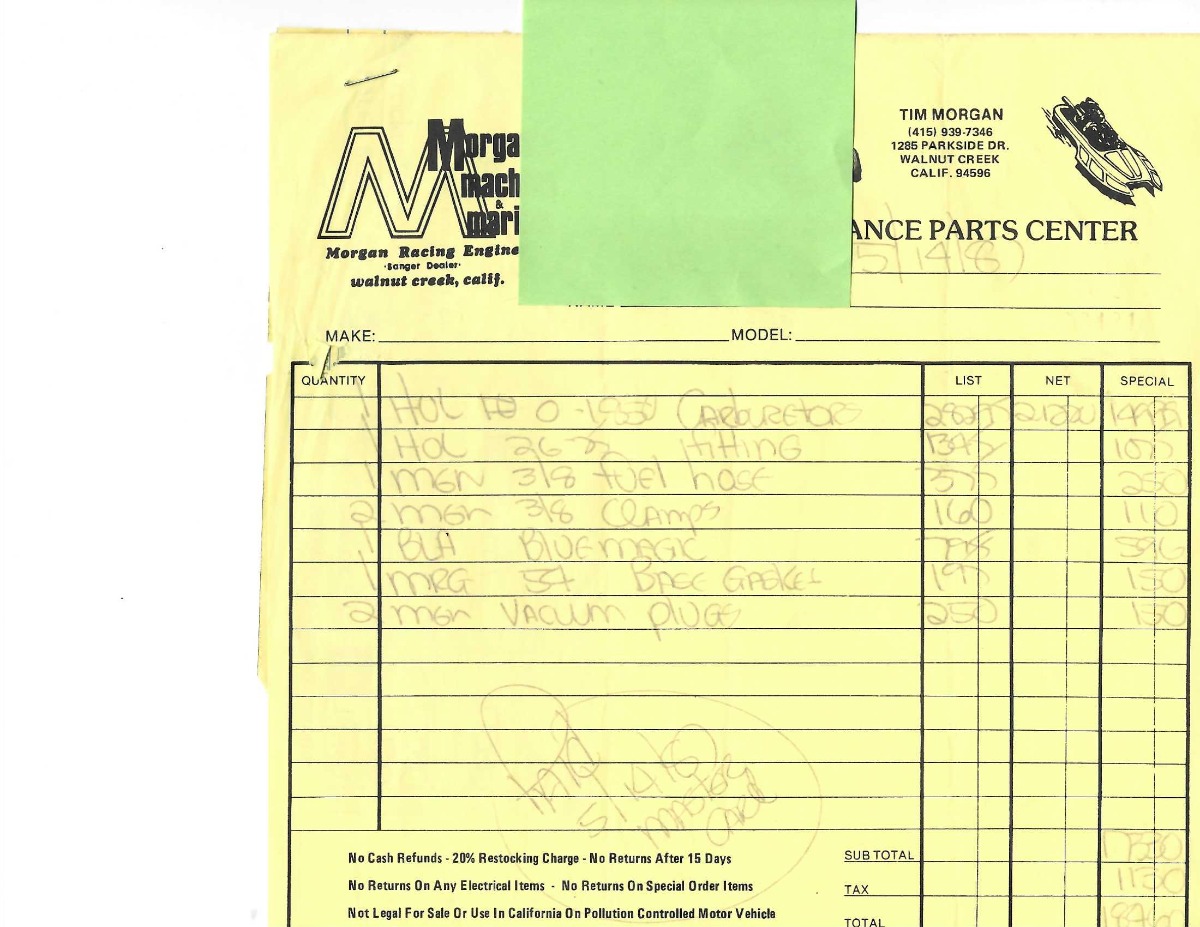 TIM MORGAN
(415) 939-7346
1285 PARKSIDE DR.
WALNUT CREEK
CALIF. 94596
Morga
mach
&
mari
Morgan Racing Engine
·Sanger Dealer·
walnut creek, calif.
ANCE PARTS CENTER
MAKE: MODEL:
QUANTITY LIST NET SPECIAL
1 HOL Carburetors
1 HOL fitting
1 MGN 3/8 fuel hose 250
2 MGN 3/8 Clamps 160 110
1 BLA BLUE MAGIC 596
1 MRG 54 BASE GASKET 150
2 MGN VACUUM PLUGS 250 150
PAID
MASTER
CARD
No Cash Refunds - 20% Restocking Charge - No Returns After 15 Days
SUB TOTAL
No Returns On Any Electrical Items - No Returns On Special Order Items
TAX 1130
Not Legal For Sale Or Use In California On Pollution Controlled Motor Vehicle
TOTAL